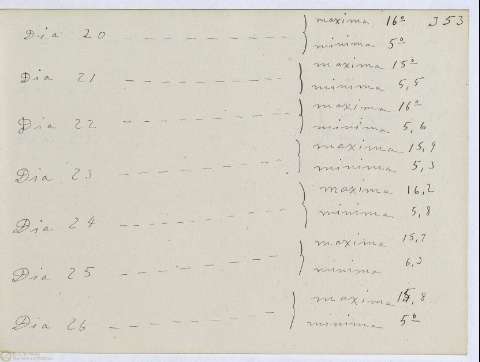 maxima 16º J53
Dia 20
minima 5º
maxima 15º
Dia 21
minima 5,5
maxima 16º
Dia 22
minima 5,6
maxima 15,9
Dia 23
minima 5,3
maxima 16,2
Dia 24
minima 5,8
maxima 15,7
Dia 25
minima 6,3
maxima 15,8
Dia 26
minima 5º